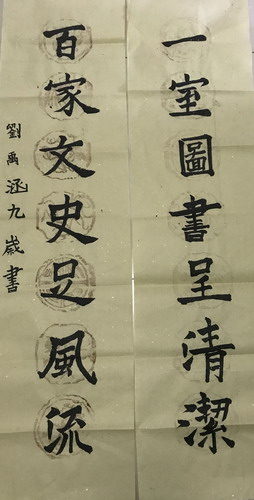 一室圖書呈清潔
百家文史足風流
劉禹涵九歲書